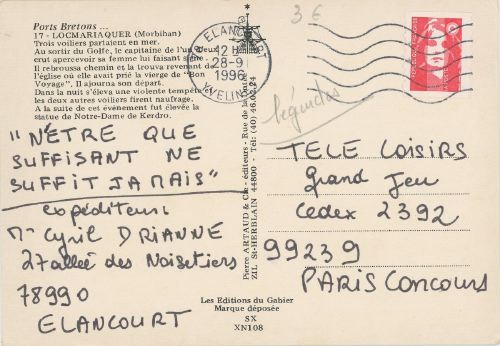 Ports Bretons ...
17 - LOCMARIAQUER (Morbihan)
Trois voiliers partaient en mer.
Au sortir du Golfe, le capitaine de l'un d'eux
crut apercevoir sa femme lui faisant signe.
Il rebroussa chemin et la trouva revenant de
l'église où elle avait prié la vierge de "Bon
Voyage". Il ajourna son départ.
Dans la nuit s'éleva une violente tempête
les deux autres voiliers firent naufrage.
A la suite de cet événement fut élevée la
statue de Notre-Dame de Kerdro.
"N'ÊTRE QUE
SUFFISANT NE
SUFFIT JAMAIS"
expéditeur:
Mr Cyril DRIANNE
27 allée des Noisetiers
78990
ELANCOURT
ELANCOURT
12 H
28-9
1996
YVELINES
3 €
légendes
Pierre ARTAUD & Cie - éditeurs - Rue de la
ZIL St-HERBLAIN 44800 - Tél: (40) 46.02.24
TELE LOISIRS
Grand Jeu
Cedex 2392
99239
PARIS Concours
Les Editions du Gabier
Marque déposée
SX
XN108